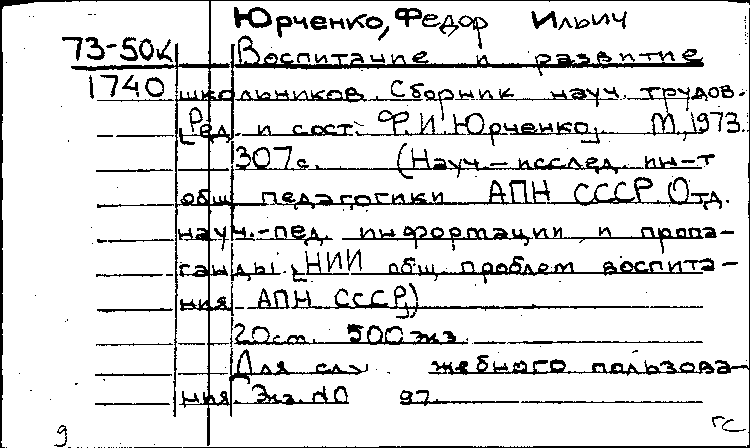 Юрченко, Федор Ильич
73-50к Воспитание и развитие
1740 школьников. Сборник науч. трудов.
[Ред. и сост. Ф.И. Юрченко]. М., 1973.
307с. (Науч-исслед. ин-т
общ. педагогики АПН СССР. Отд.
науч.-пед. информации и пропа-
ганды. [НИИ общ. проблем воспита-
ния АПН СССР])
20см. 500 экз.
Для слу жебного пользова-
ния. Экз. №0 97.
9 ГС